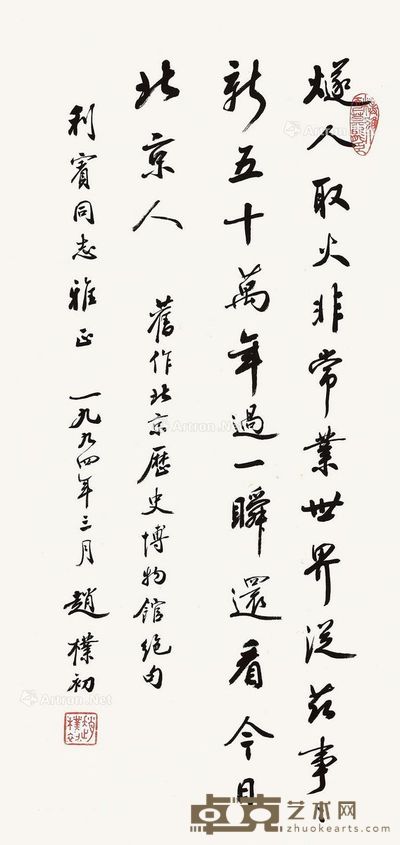 燧人取火非常業世界從茲事事
新五十萬年過一瞬還看今日
北京人 舊作北京歷史博物館絕句
利賓同志雅正 一九九四年三月 趙樸初
趙樸初
Artron.Net
卓克艺术网
www.zhuokearts.com